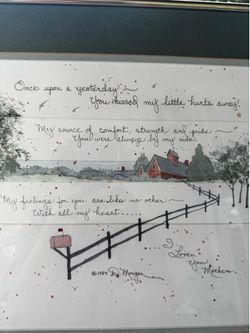 Once upon a yesterday ~
You kissed my little hurts away.
My source of comfort, strength and pride ~
You were always by my side.
My feelings for you are like no other ~
With all my heart ....
.... I Love
You
Mother
©1989 D. Morgan